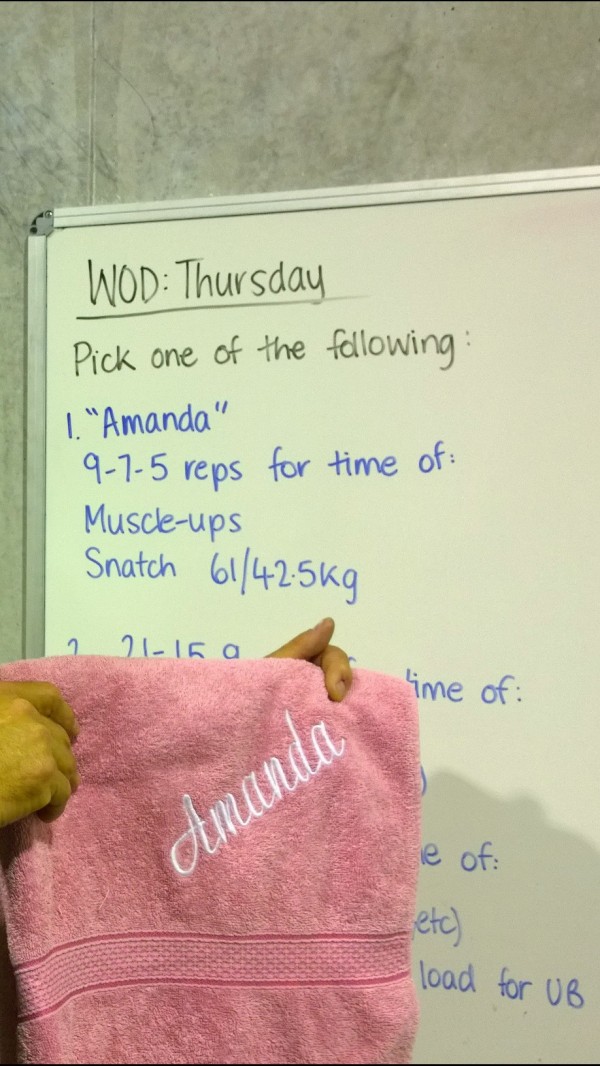 WOD: Thursday
Pick one of the following:
1. "Amanda"
9-7-5 reps for time of:
Muscle-ups
Snatch 61/42.5kg
2. 21-15 9 time of:
Amanda
of:
etc)
load for UB